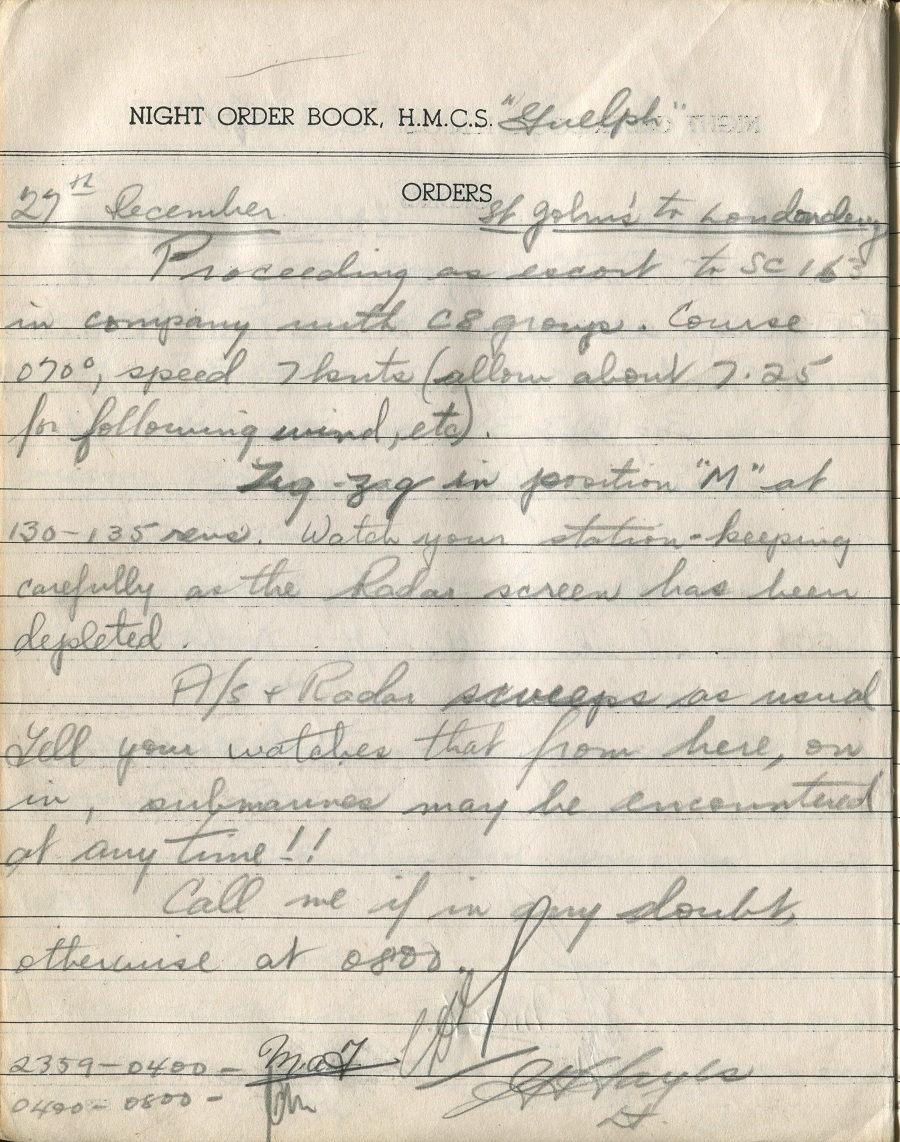 NIGHT ORDER BOOK, H.M.C.S. "Guelph"
ORDERS
27th December St John's to Londonderry
Proceeding as escort to SC 163
in company with C8 group. Course
070°, speed 7 knts (allow about 7.25
for following wind, etc).
Zig-zag in position "M" at
130-135 revs. Watch your station-keeping
carefully as the Radar screen has been
depleted.
A/S + Radar sweeps as usual
Tell your watches that from here, on
in, submarines may be encountered
at any time!!
Call me if in any doubt,
otherwise at 0800.
2359-0400 -
0400 - 0800 -
Hayes
Lt.